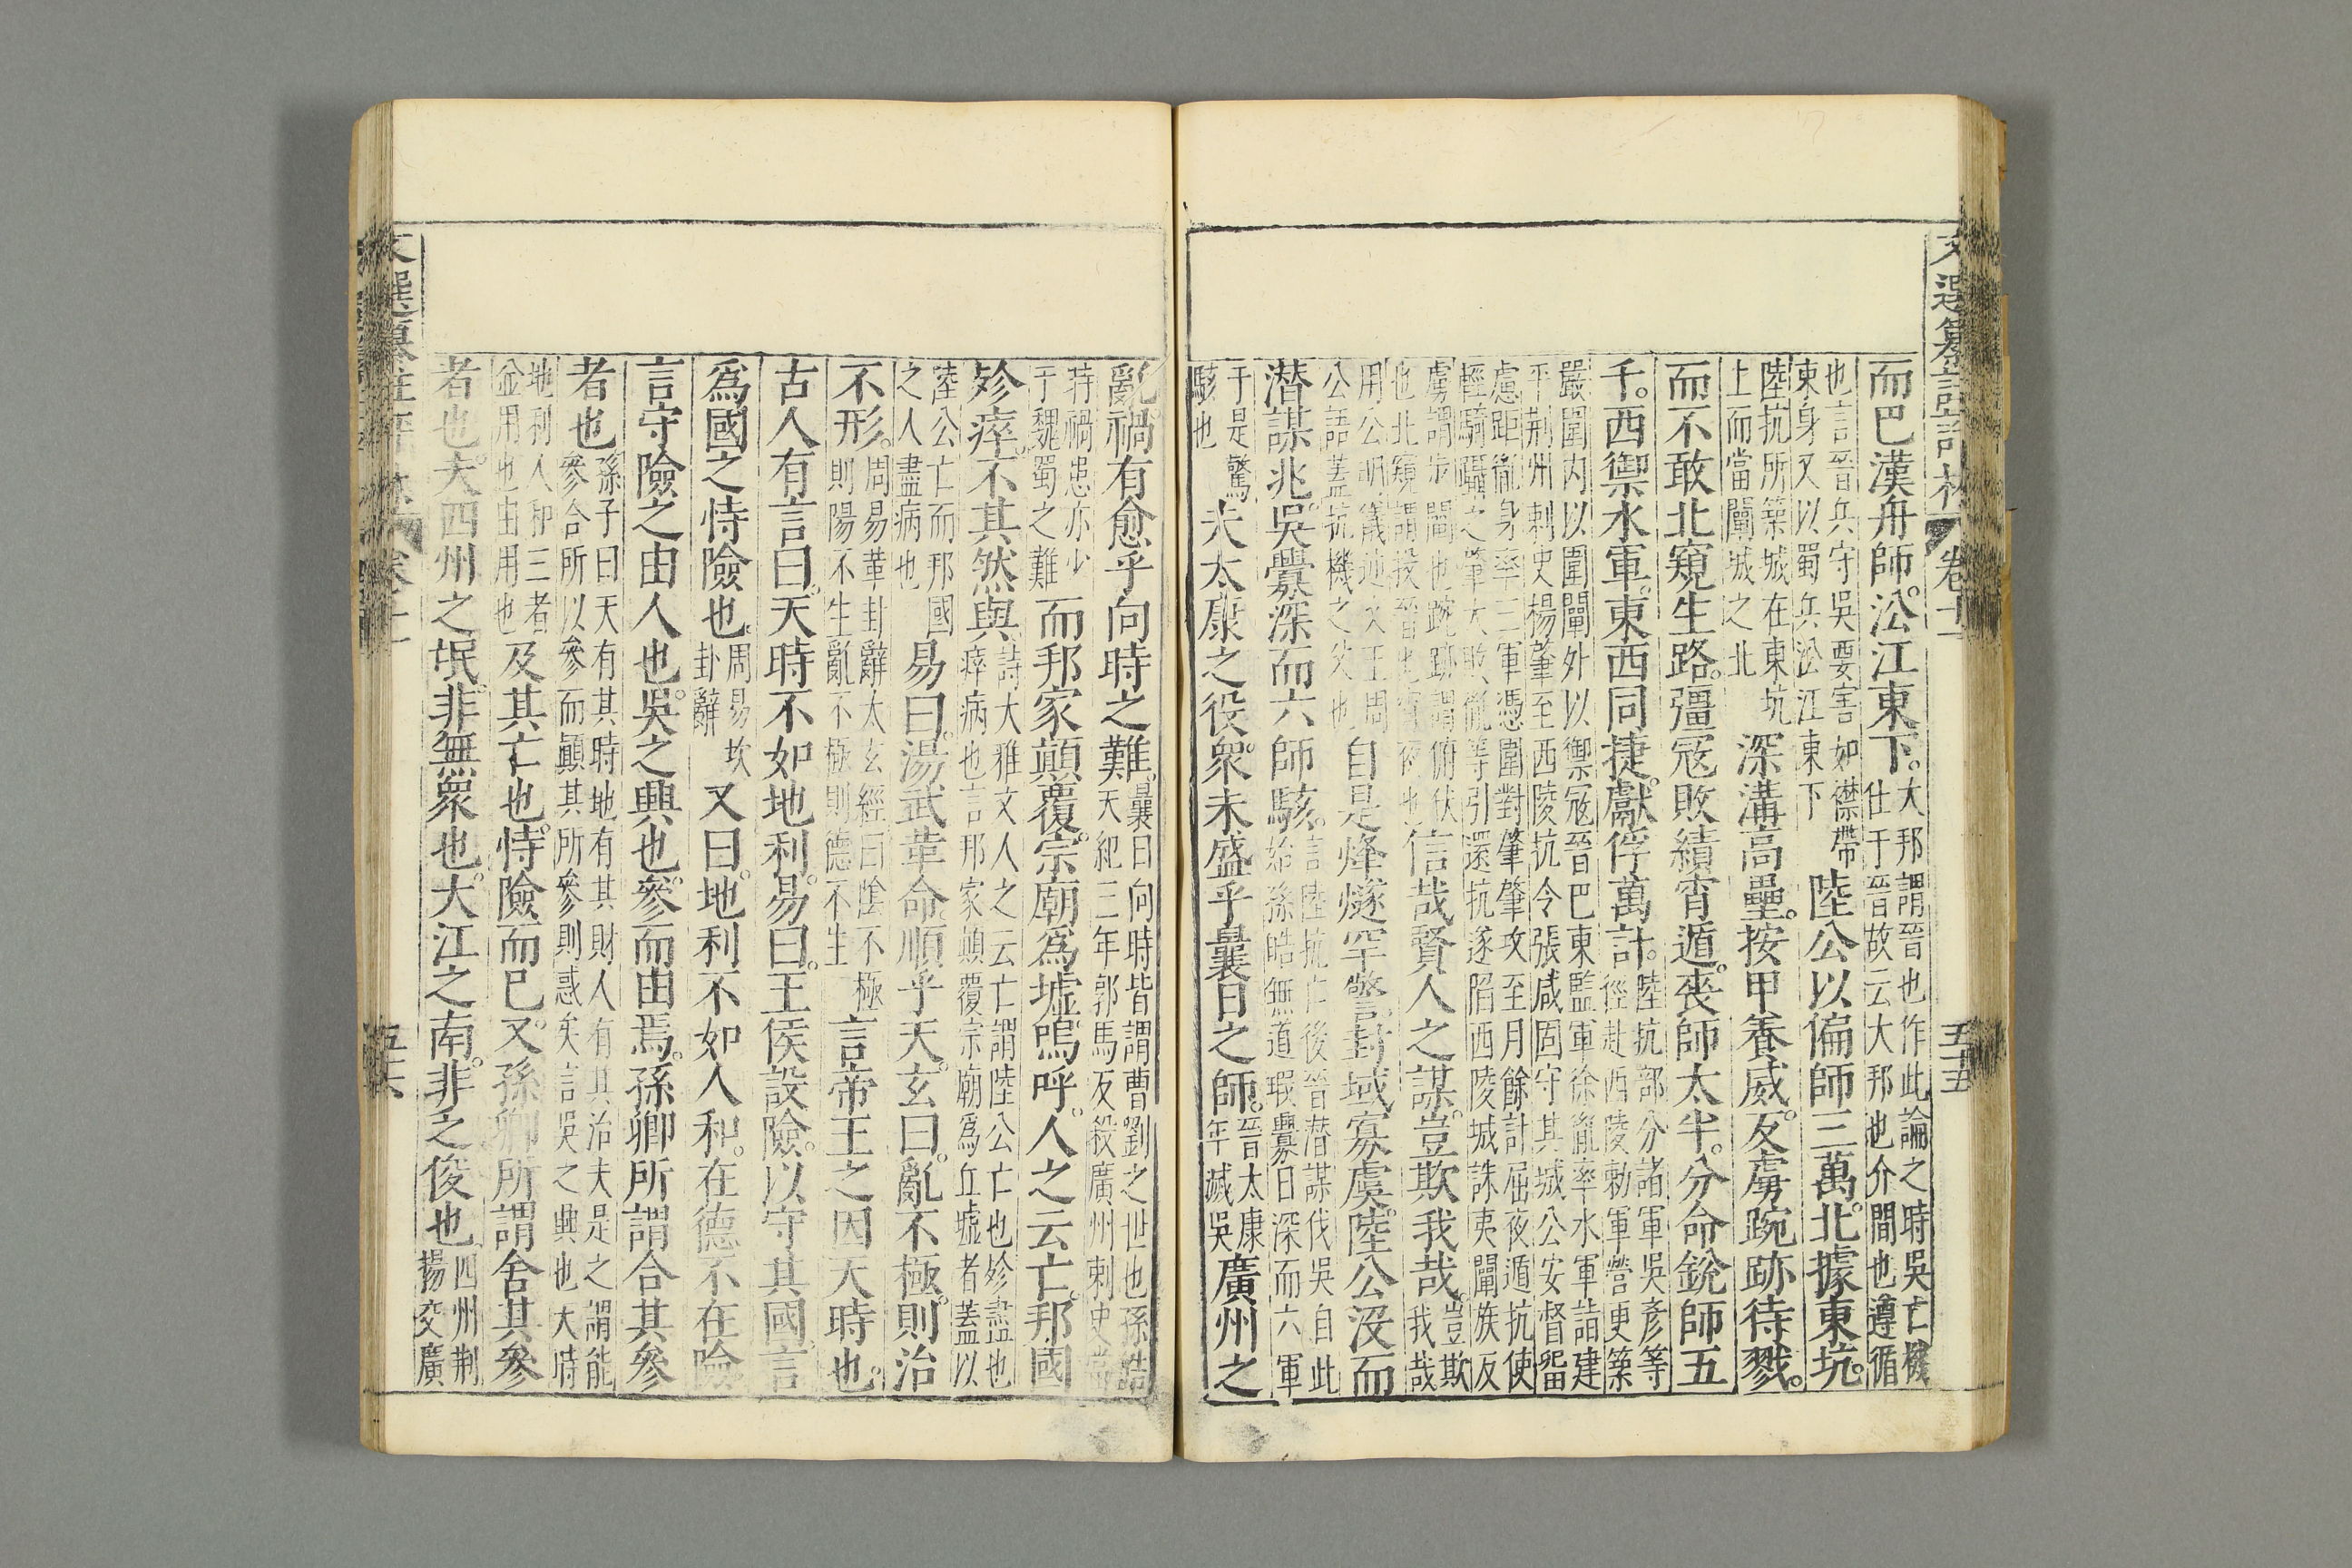 卷十一
五十五
而巴漢舟師沿江東下大邦謂晉也作此論之時吳亡機仕于晉故云大邦也介間也遵循
也言晉兵守吳要害如襟帶東身又以蜀兵沿江東下陸公以偏師三萬北據東坑
陸抗所築城在東坑上而當闡城之北深溝高壘按甲養威反虜踠跡待戮
而不敢北窺生路彊寇敗績宵遁喪師太半分命銳師五
千西禦水軍東西同捷獻俘萬計陸抗部分諸軍吳彥等徑赴西陵勅軍營更築
嚴圍內以圍闡外以禦寇晉巴東監軍徐胤率水軍詣建平荊州刺史楊肇至西陵抗令張咸固守其城公安督留
慮距胤身率三軍憑圍對肇肇攻至月餘計屈夜遁抗使輕騎躡之肇大敗胤等引還抗遂陷西陵城誅夷闡族反
虜謂步闡也踠跡謂俯伏也北窺謂投晉也宵夜也信哉賢人之謀豈欺我哉豈欺我哉
用公明儀述文王周公語蓋抗機之父也自是烽燧罕警封域寡虞陸公沒而
潛謀兆吳釁深而六師駭言陸抗亡後晉潛謀伐吳自此始孫皓無道瑕釁日深而六軍
于是驚駭也夫太康之役衆未盛乎曩日之師晉太康年滅吳廣州之
亂禍有愈乎向時之難曩日向時皆謂曹劉之世也孫皓天紀三年郭馬反殺廣州刺史當
時禍患亦少于魏蜀之難而邦家顛覆宗廟為墟嗚呼人之云亡邦國
殄瘁不其然與詩大雅文人之云亡謂陸公亡也殄盡也瘁病也言邦家顛覆宗廟為丘墟者蓋以
陸公亡而邦國之人盡病也易曰湯武革命順乎天玄曰亂不極則治
不形周易革卦辭太玄經曰陰不極則陽不生亂不極則德不生言帝王之因天時也
古人有言曰天時不如地利易曰王侯設險以守其國言
爲國之恃險也周易坎卦辭又曰地利不如人和在德不在險
言守險之由人也吳之興也參而由焉孫卿所謂合其參
者也孫子曰天有其時地有其財人有其治夫是之謂能參合所以參而顧其所參則惑矣言吳之興也天時
地利人和三者並用也由用也及其亡也恃險而已又孫卿所謂舍其參
者也夫四州之氓非無衆也大江之南非之俊也四州荊揚交廣